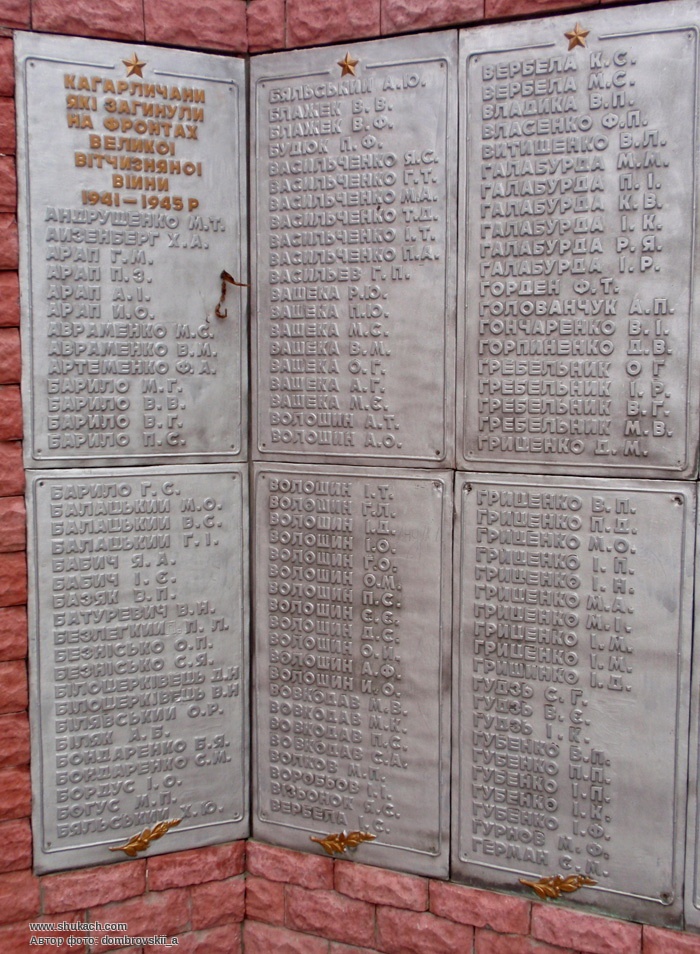 КАГАРЛИЧАНИ
ЯКІ ЗАГИНУЛИ
НА ФРОНТАХ
ВЕЛИКОЇ
ВІТЧИЗНЯНОЇ
ВІЙНИ
1941–1945 Р
АНДРУЩЕНКО М.Т.
АИЗЕНБЕРГ Х.А.
АРАП Г.М.
АРАП П.З.
АРАП А.І.
АРАП И.О.
АВРАМЕНКО М.С.
АВРАМЕНКО В.М.
АРТЕМЕНКО Ф.А.
БАРИЛО М.Г.
БАРИЛО В.В.
БАРИЛО В.Г.
БАРИЛО П.С.
БАРИЛО Г.С.
БАЛАЦЬКИЙ М.О.
БАЛАЦЬКИЙ В.С.
БАЛАЦЬКИЙ Г.І.
БАБИЧ Я.А.
БАБИЧ І.Є.
БАЗЯК В.П.
БАТУРЕВИЧ В.Н.
БЕЗЛЕГКИЙ П.Л.
БЕЗНІСЬКО О.П.
БЕЗНІСЬКО С.Я.
БІЛОЦЕРКІВЕЦЬ Д.И
БІЛОЦЕРКІВЕЦЬ В.И
БІЛЯВСЬКИЙ О.Р.
БІЛЯК А.Б.
БОНДАРЕНКО Б.Я.
БОНДАРЕНКО С.М.
БОРДУС І.О.
БОГУС М.П.
БЯЛЬСЬКИЙ Х.Ю.
БЯЛЬСЬКИЙ А.Ю.
БЛАЖЕК В.В.
БЛАЖЕК В.Ф.
БУДЮК П.Ф.
ВАСИЛЬЧЕНКО Я.С.
ВАСИЛЬЧЕНКО Г.Т.
ВАСИЛЬЧЕНКО М.А.
ВАСИЛЬЧЕНКО Т.Д.
ВАСИЛЬЧЕНКО І.Т.
ВАСИЛЬЧЕНКО П.А.
ВАСИЛЬЕВ Г.П.
ВАЩЕКА Р.Ю.
ВАЩЕКА П.Ю.
ВАЩЕКА М.С.
ВАЩЕКА В.М.
ВАЩЕКА О.Г.
ВАЩЕКА А.Г.
ВАЩЕКА М.Є.
ВОЛОШИН А.Т.
ВОЛОШИН А.О.
ВОЛОШИН І.Т.
ВОЛОШИН Г.Л.
ВОЛОШИН І.Д.
ВОЛОШИН І.О.
ВОЛОШИН Г.О.
ВОЛОШИН О.М.
ВОЛОШИН П.С.
ВОЛОШИН С.Є.
ВОЛОШИН Д.С.
ВОЛОШИН О.И.
ВОЛОШИН А.Ф.
ВОЛОШИН И.О.
ВОВКОДАВ М.В.
ВОВКОДАВ М.К.
ВОВКОДАВ П.С.
ВОВКОДАВ С.А.
ВОЛКОВ М.П.
ВОРОБЬОВ І.І.
ВІЗЬОНОК Я.С.
ВЕРБЕЛА І.С.
ВЕРБЕЛА К.С.
ВЕРБЕЛА М.С.
ВЛАДИКА В.П.
ВЛАСЕНКО Ф.П.
ВИТИЩЕНКО В.Л.
ГАЛАБУРДА М.М.
ГАЛАБУРДА П.І.
ГАЛАБУРДА К.В.
ГАЛАБУРДА І.К.
ГАЛАБУРДА Р.Я.
ГАЛАБУРДА І.Р.
ГОРДЕН Ф.Т.
ГОЛОВАНЧУК А.П.
ГОНЧАРЕНКО В.І.
ГОРПИНЕНКО Д.В.
ГРЕБЕЛЬНИК О Г
ГРЕБЕЛЬНИК І.Р.
ГРЕБЕЛЬНИК В.Г.
ГРЕБЕЛЬНИК М.В.
ГРИЦЕНКО Д.М.
ГРИЦЕНКО В.П.
ГРИЦЕНКО П.Д.
ГРИЦЕНКО М.О.
ГРИЦЕНКО І.П.
ГРИЦЕНКО І.Н.
ГРИЦЕНКО М.А.
ГРИЦЕНКО М.І.
ГРИЦЕНКО І.М.
ГРИЦЕНКО І.М.
ГРИЩИНКО І.Д.
ГУДЗЬ С.Г.
ГУДЗЬ Б.Є.
ГУДЗЬ І.К.
ГУБЕНКО В.П.
ГУБЕНКО П.П.
ГУБЕНКО І.П.
ГУБЕНКО І.К.
ГУБЕНКО І.Ф.
ГУРНОВ М.Ф.
ГЕРМАН С.М.
www.shukach.com
Автор фото: dombrovskii_a